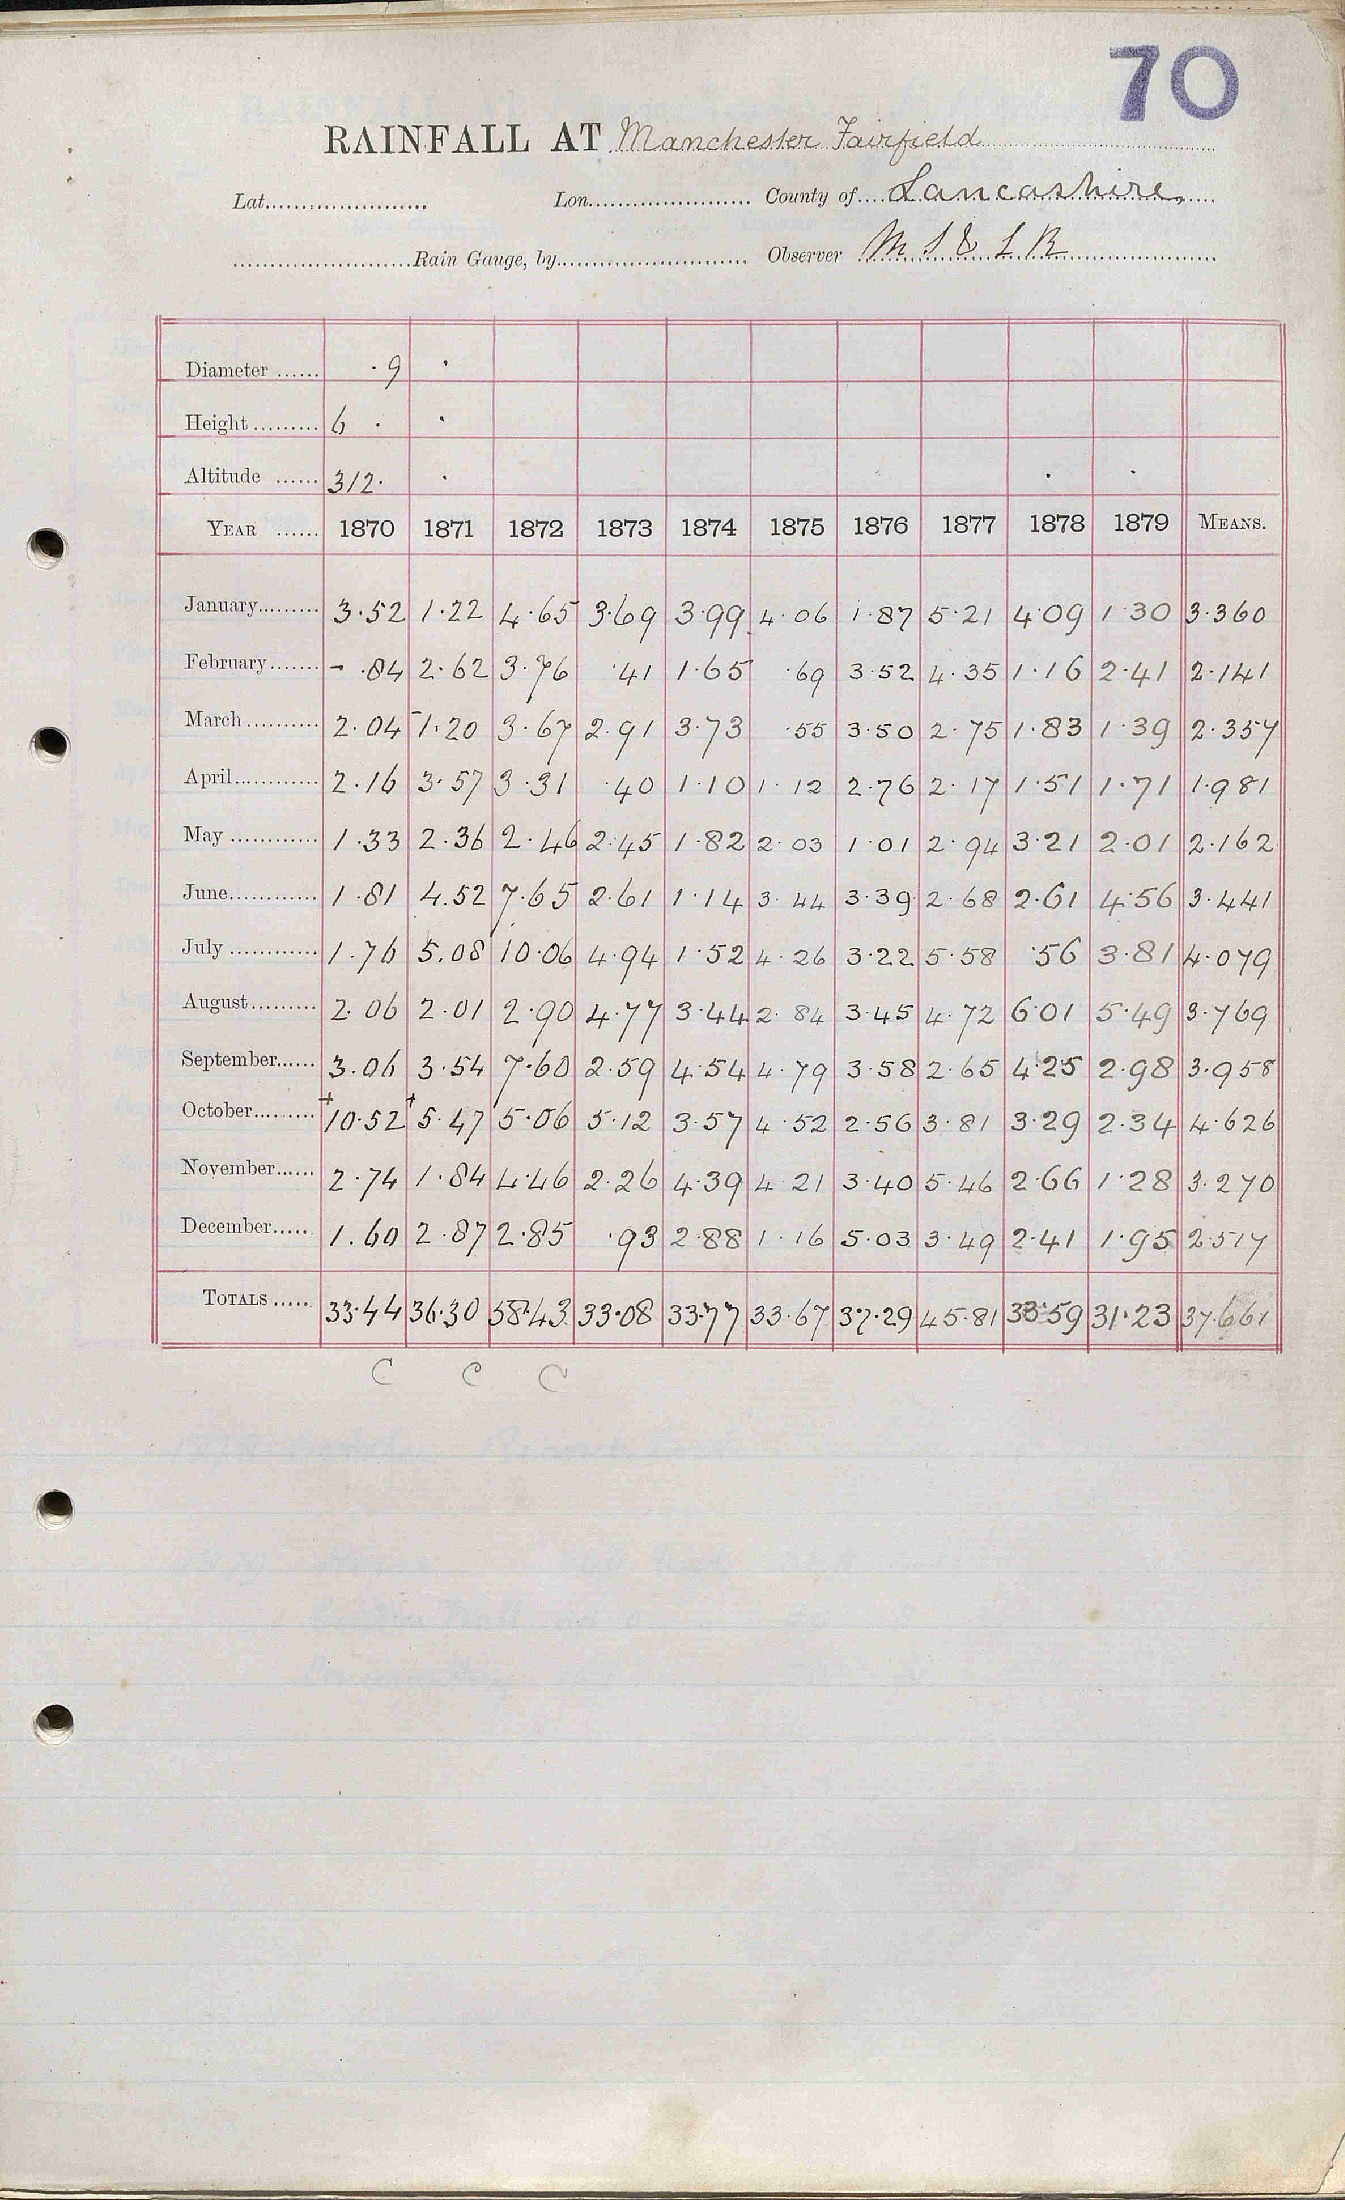 70
RAINFALL AT Manchester Fairfield
Lat. Lon. County of Lancashire.
Rain Gauge, by Observer M S & L R
Diameter ...... ·9 ·
Height ......... 6 · ·
Altitude ...... 312· · · ·
YEAR ...... 1870 1871 1872 1873 1874 1875 1876 1877 1878 1879 MEANS.
January......... 3·52 1·22 4·65 3·69 3·99 4·06 1·87 5·21 4·09 1·30 3·360
February....... - ·84 2·62 3·76 ·41 1·65 ·69 3·52 4·35 1·16 2·41 2·141
March .......... 2·04 -1·20 3·67 2·91 3·73 ·55 3·50 2·75 1·83 1·39 2·357
April............ 2·16 3·57 3·31 ·40 1·10 1·12 2·76 2·17 1·51 1·71 1·981
May ............ 1·33 2·36 2·46 2·45 1·82 2·03 1·01 2·94 3·21 2·01 2·162
June............ 1·81 4.52 7·65 2·61 1·14 3·44 3·39 2·68 2·61 4·56 3·441
July ............ 1·76 5.08 10·06 4·94 1·52 4·26 3·22 5·58 ·56 3·81 4·079
August......... 2·06 2·01 2·90 4·77 3·44 2·84 3·45 4·72 6·01 5·49 3·769
September...... 3·06 3·54 7·60 2·59 4·54 4·79 3·58 2·65 4·25 2·98 3·958
October......... +10·52 +5·47 5·06 5·12 3·57 4·52 2·56 3·81 3·29 2·34 4·626
November...... 2·74 1·84 4·46 2·26 4·39 4·21 3·40 5·46 2·66 1·28 3·270
December..... 1·60 2·87 2·85 ·93 2·88 1·16 5·03 3·49 2·41 1·95 2·517
TOTALS ..... 33·44 36·30 58·43 33·08 33·77 33·67 37·29 45·81 33·59 31·23 37·661
C C C